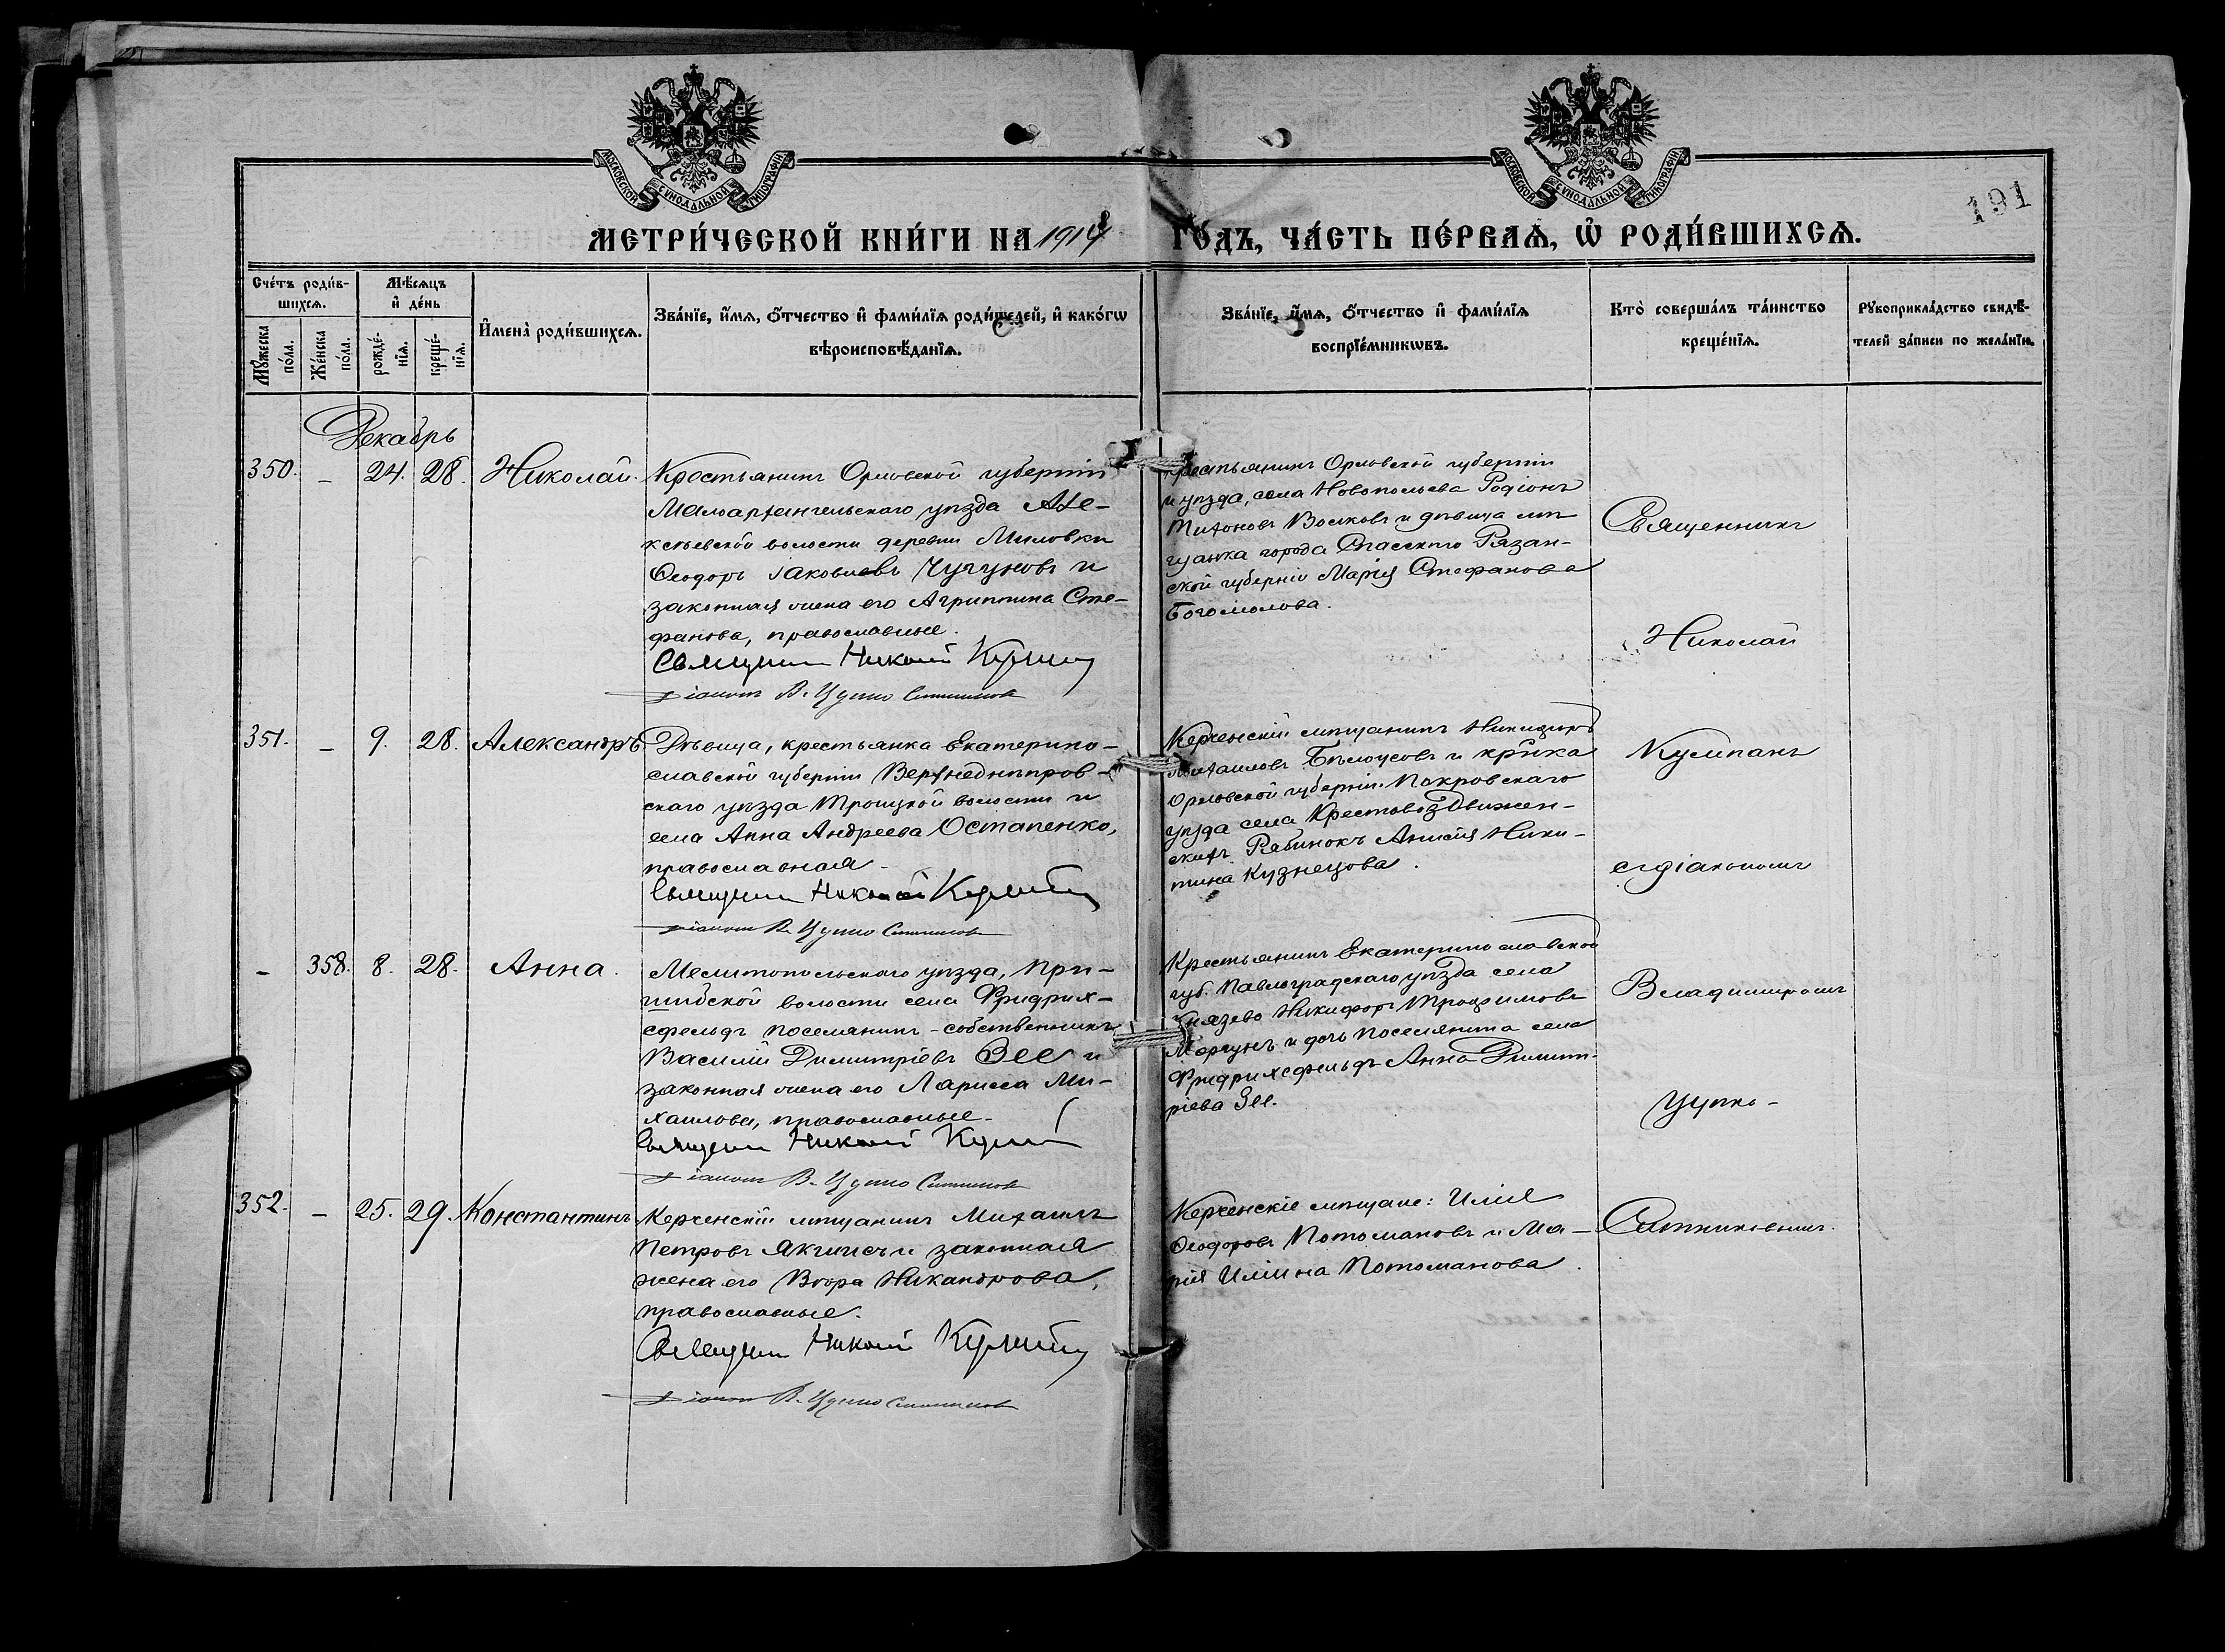 МОСКОВСКОЙ СУНОДАЛЬНОЙ ТИПОГРАФІИ
МОСКОВСКОЙ СУНОДАЛЬНОЙ ТИПОГРАФІИ
191
МЕТРИ́ЧЕСКОЙ КНИ́ГИ НА 1914 ГО́ДЪ, ЧА́СТЬ ПЕ́РВАѦ, Ѡ҆ РОДИ́ВШИХСѦ.
Сче́тъ роди́в-
шихсѧ.
Мꙋ́жеска по́ла.
Же́нска по́ла.
Мѣ́сѧцъ и҆ де́нь
рожде́-нїѧ.
креще́-нїѧ.
И҆мена̀ роди́вшихсѧ.
Зва́нїе, и҆́мѧ, ѻ҆́тчество и҆ фами́лїѧ роди́телей, и҆ како́гѡ
вѣроисповѣ́данїѧ.
Зва́нїе, и҆́мѧ, ѻ҆́тчество и҆ фами́лїѧ
воспрїе́мникѡвъ.
Кто̀ соверша́лъ та́инство
креще́нїѧ.
Рꙋкоприкла́дство свидѣ́-
телей за́писи по жела́нїю.
Декабрь
350. – 24. 28. Николай.
Крестьянинъ Орловской губерніи
Малоархангельскаго уѣзда Але-
ксѣевской волости деревни Миловки
Ѳеодоръ Іаковлевъ Чугуновъ и
законная жена его Агриппина Сте-
фанова, православные.
Священникъ Николай
Діаконъ В. Цушко Ситниковъ
Крестьянинъ Орловской губерніи
и уѣзда, села Новопольева Родіонъ
Тихоновъ Волковъ и дѣвица мѣ
щанка города Спасскаго Рязан-
ской губерніи Марія Стефанова
Богомолова.
Священникъ
Николай
351. – 9. 28. Александръ
Дѣвица, крестьянка Екатерино-
славской губерніи Верхнеднѣпров-
скаго уѣзда Троицкой волости и
села Анна Андреева Остапенко,
православная.
Священникъ Николай
Діаконъ В. Цушко Ситниковъ
Керченскій мѣщанинъ Никифоръ
Михаиловъ Бѣлоусовъ и кр̃нка
Орловской губерніи Покровскаго
уѣзда села Крестовоздвижен-
скихъ Рябинокъ Анисія Ники-
тина Кузнецова.
съ діакономъ
– 358. 8. 28. Анна.
Мелитопольскаго уѣзда, При-
шибской волости села Фридрих-
сфельдъ поселянинъ-собственникъ
Василій Димитріевъ Зее и
законная жена его Лариса Ми-
хаилова, православные.
Священникъ Николай
Діаконъ В. Цушко Ситниковъ
Крестьянинъ Екатеринославской
губ. Павлоградскаго уѣзда села
Князево Никифоръ Трофимовъ
Моргунъ и дочь поселянина села
Фридрихсфельдъ Анна Димит-
ріева Зее.
Владимиромъ
Цушко-
352. – 25. 29. Константинъ
Керченскій мѣщанинъ Михаилъ
Петровъ и законная
жена его Вѣра Никандрова,
православные.
Священникъ Николай
Діаконъ В. Цушко Ситниковъ
Керченскіе мѣщане: Илія
Ѳеодоровъ Потомановъ и Ма-
рія Иліина Потоманова.
Ситниковымъ.